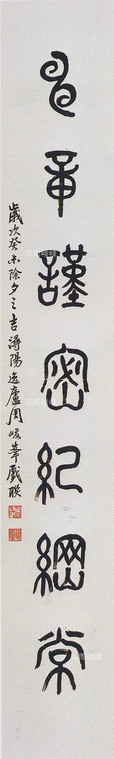 章謹密紀綱常
歲次癸未除夕之吉潯陽逸廬周峻峯戲聯